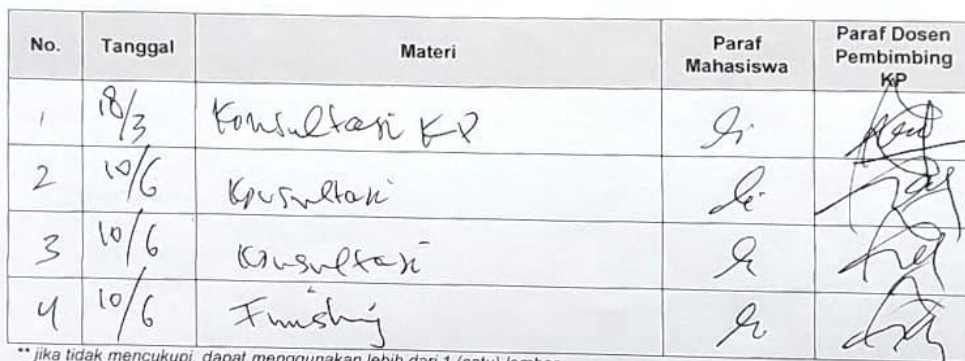 No. Tanggal Materi Paraf Mahasiswa Paraf Dosen Pembimbing KP
1 18/3 Konsultasi KP
2 10/6 Konsultasi
3 10/6 Konsultasi
4 10/6 Finishing
** jika tidak mencukupi, dapat menggunakan lebih dari 1 (satu) lembar